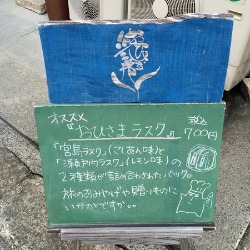 オススメ
『おひさまラスク』
税込
700円
「宮島ラスク」(こしあん味)と
(レモン味)の
2種類が詰め合わされたパック。
旅のおみやげや贈りものに
いかがですか。